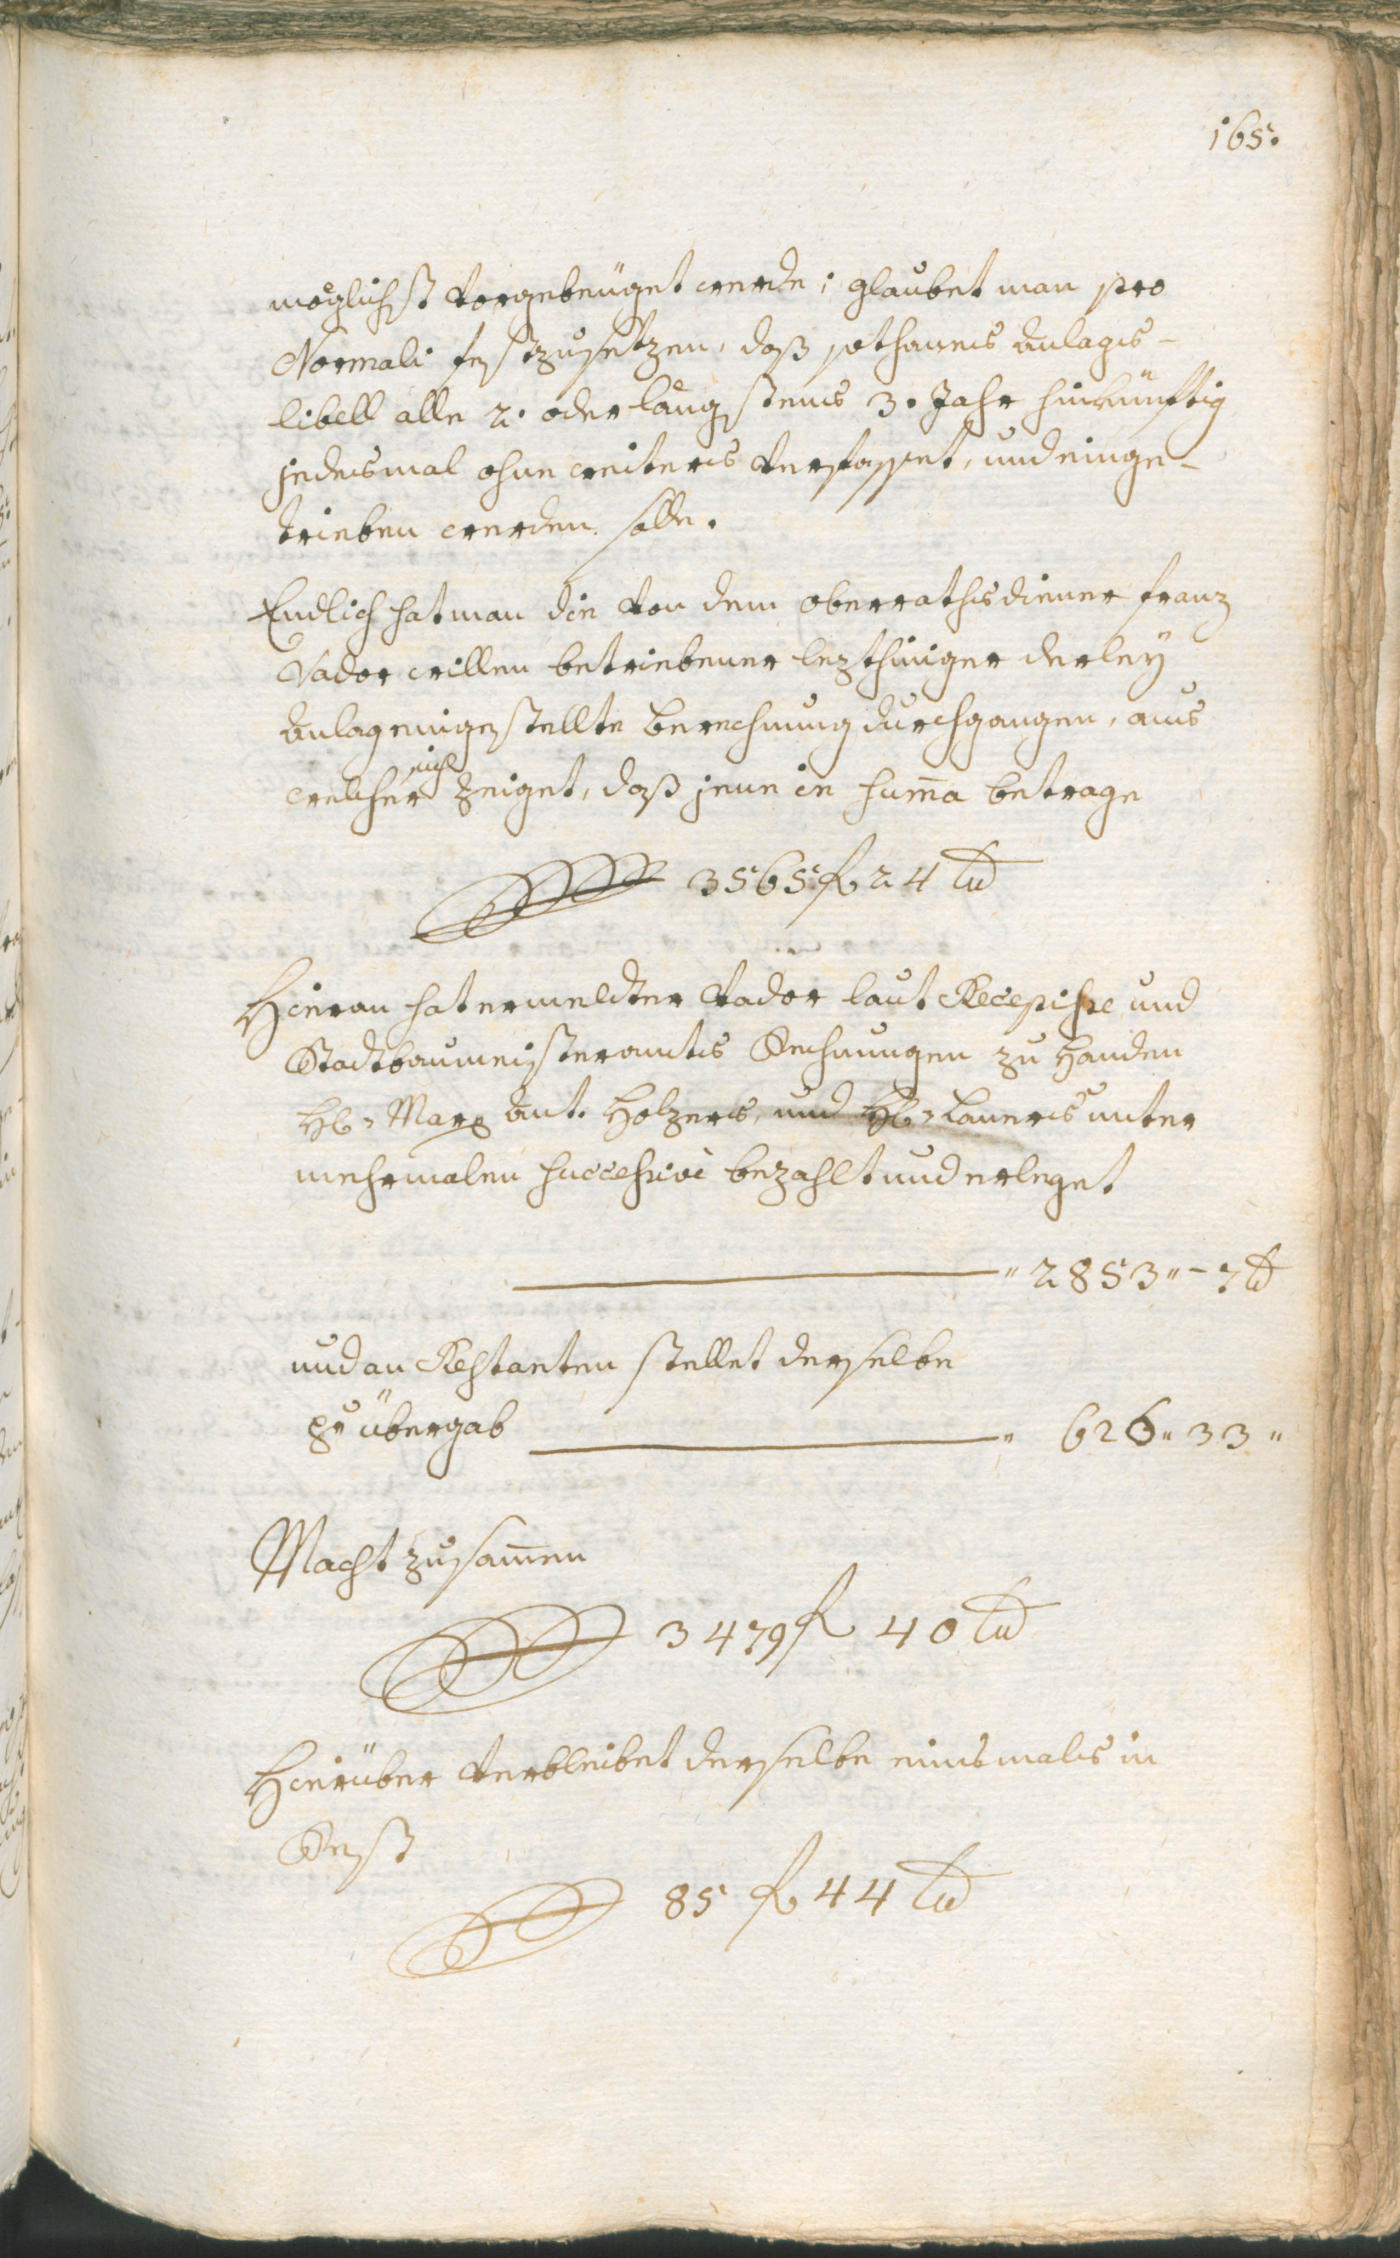 165.
möglichst vorgebeüget werde; glaubet man pro
Normali festzusetzen, daß sothannes Anlags-
libell alle 2. oder längstens 3. Jahr hinkünftig
jedesmal ohne weiters verfasset, und einge-
trieben werden solle.
Endlich hat man die von dem oberrathsdiener Franz
Vador willen betriebener lezthiniger derley
Anlag eingestellte Berechnung durchgangen, aus
welcher sich zeiget, daß jene in Summa betrage
3565 fl 24 xr
Hieran hat ermeldter Vador laut Recepisse und
Stadtbaumeisteramts Rechnungen zu Handen
H: Marx Ant. Holzers, und H: Lauers unter
mehrmalen successivè bezahlt und erleget
" 2853 " - 7 xr
und an Restanten stellet derselbe
zur übergab " 626 " 33 "
Macht zusammen
3479 fl 40 xr
Hierüber verbleibet derselbe einsmals in
Rest
85 fl 44 xr